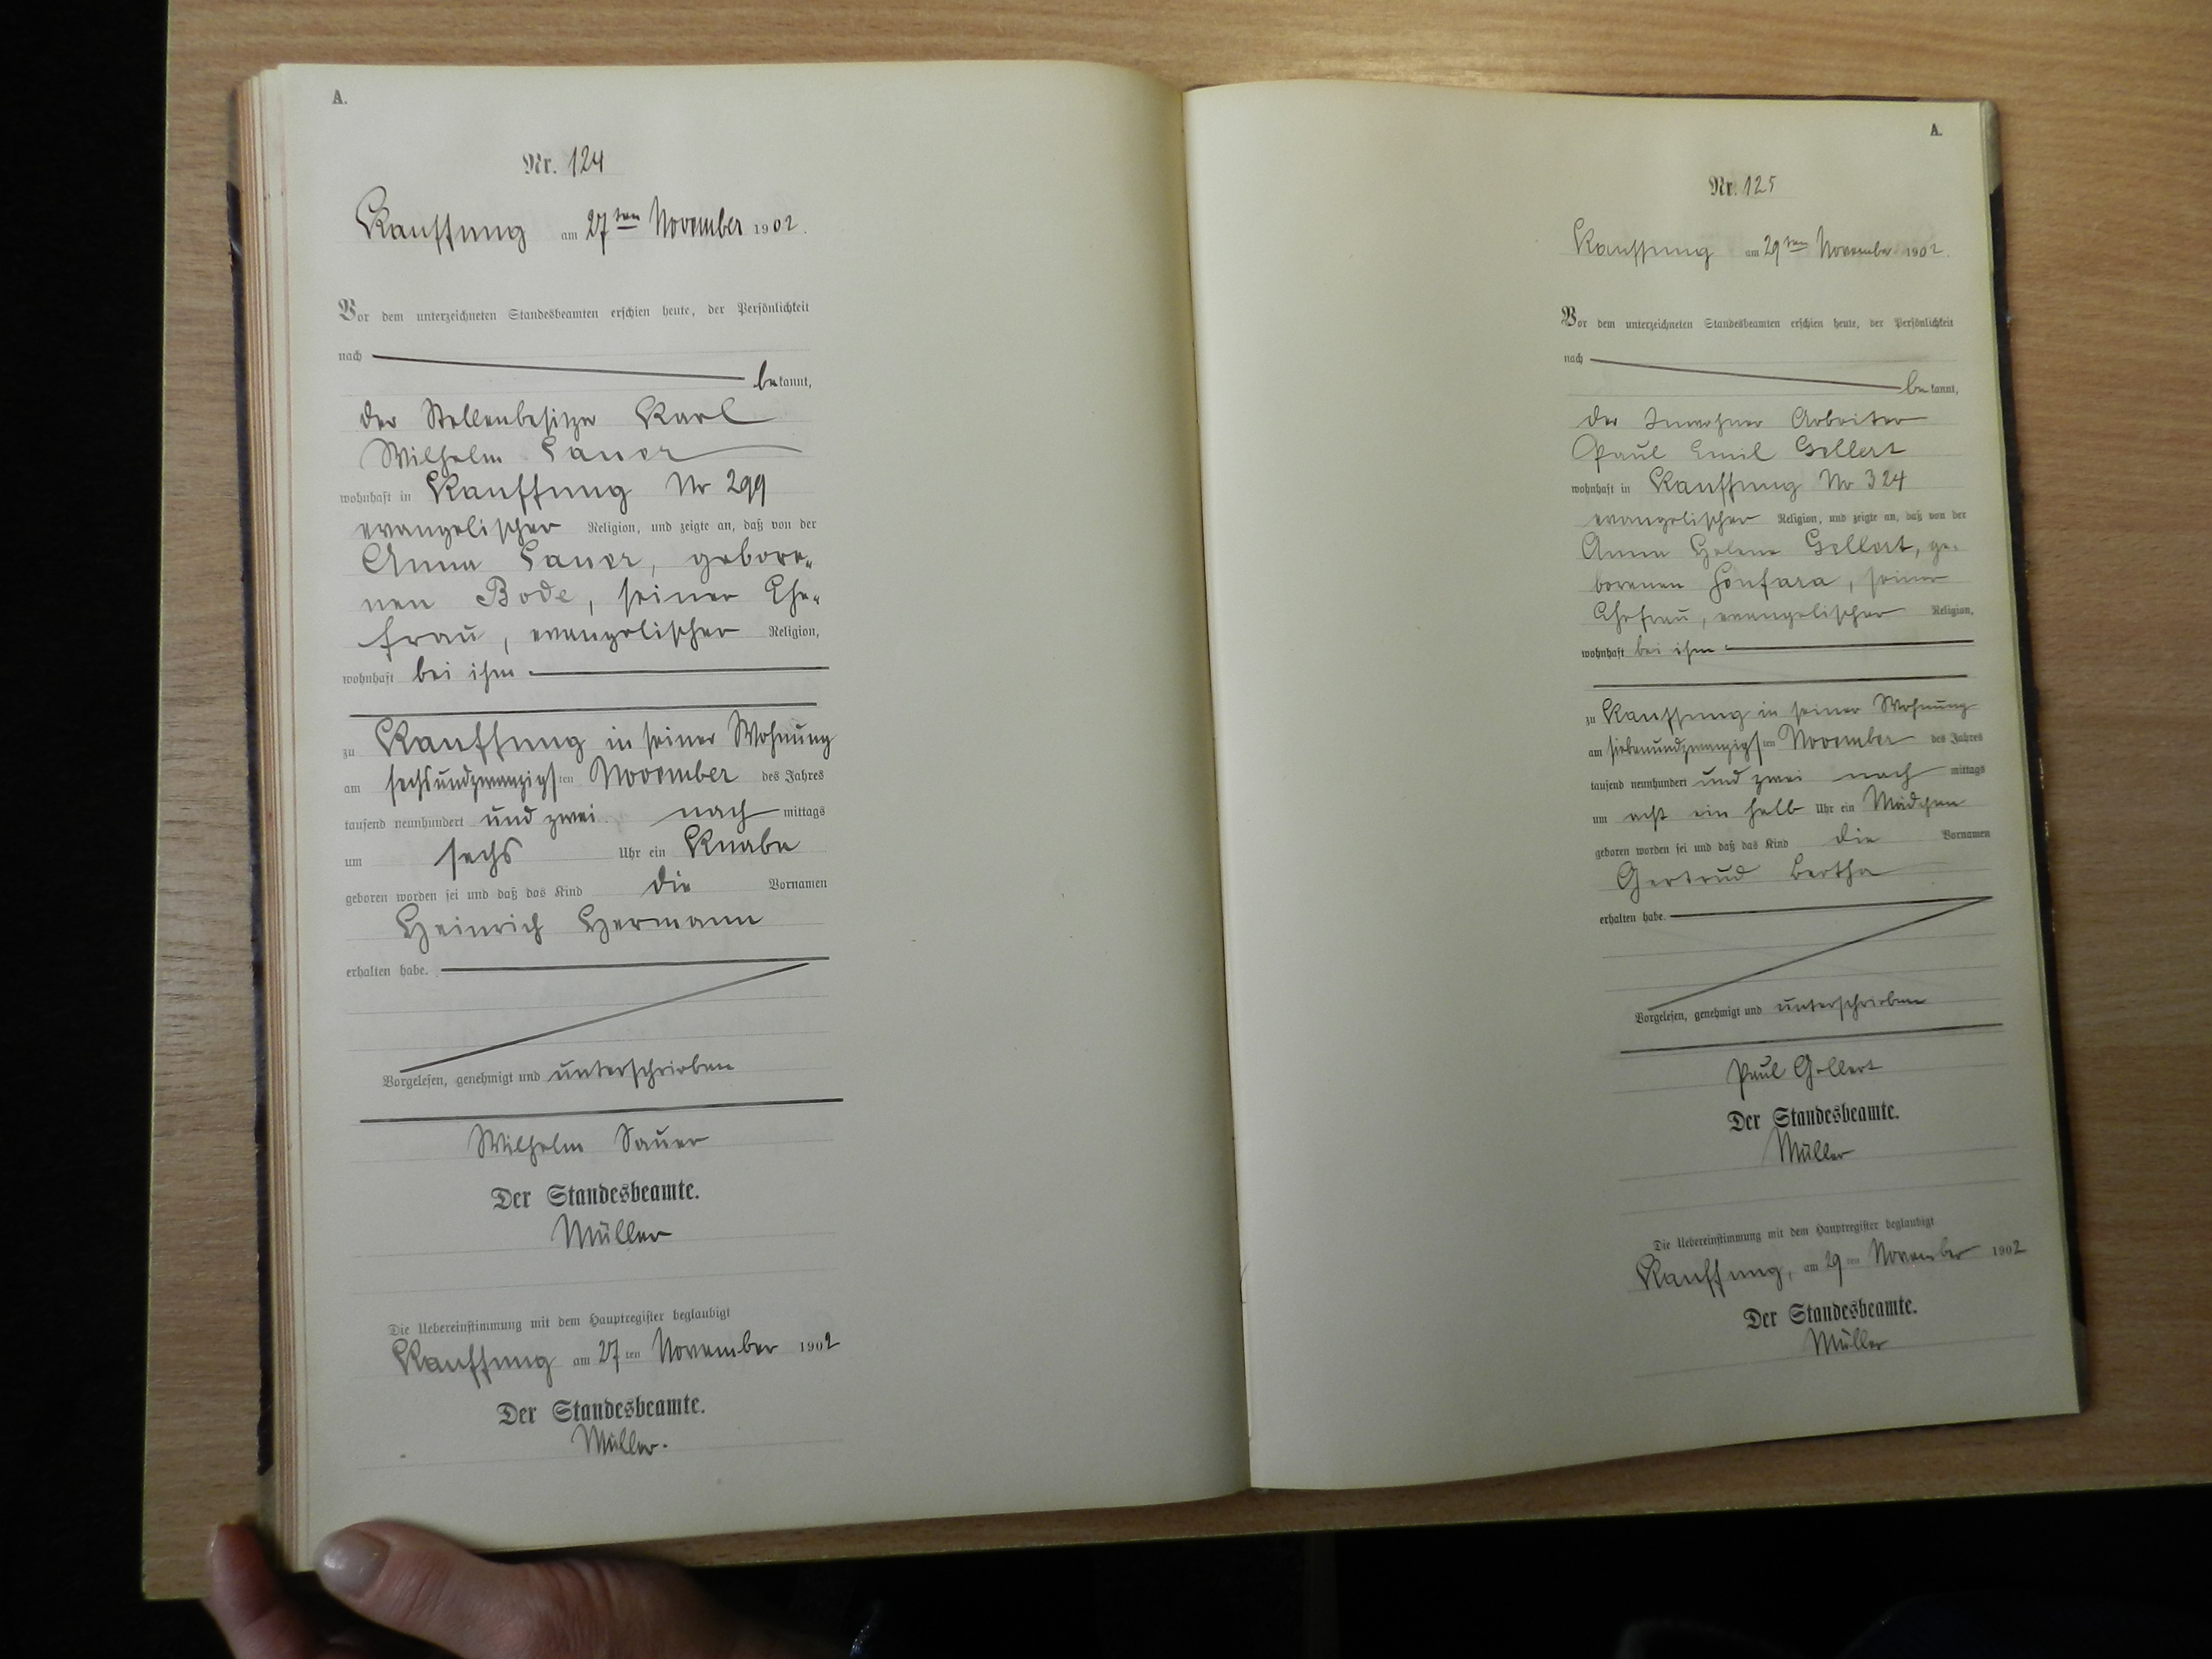 A.
Nr. 124
Kauffung am 27ten November 1902.
Vor dem unterzeichneten Standesbeamten erschien heute, der Persönlichkeit
nach
bekannt,
der Stellenbesitzer Karl
Wilhelm Sauer
wohnhaft in Kauffung Nr 299
evangelischer Religion, und zeigte an, daß von der
Anna Sauer, gebore-
nen Bode, seiner Ehe-
frau, evangelischer Religion,
wohnhaft bei ihm
zu Kauffung in seiner Wohnung
am sechsundzwanzigsten November des Jahres
tausend neunhundert und zwei nach mittags
um sechs Uhr ein Knabe
geboren worden sei und daß das Kind die Vornamen
Heinrich Hermann
erhalten habe.
Vorgelesen, genehmigt und unterschrieben
Wilhelm Sauer
Der Standesbeamte.
Müller
Die Uebereinstimmung mit dem Hauptregister beglaubigt
Kauffung am 27ten November 1902
Der Standesbeamte.
Müller.
A.
Nr. 125
Kauffung am 29ten November 1902.
Vor dem unterzeichneten Standesbeamten erschien heute, der Persönlichkeit
nach
bekannt,
der Inwohner Arbeiter
Paul Emil Gellert
wohnhaft in Kauffung Nr 324
evangelischer Religion, und zeigte an, daß von der
Anna Helene Gellert, ge-
borenen, seiner
Ehefrau, evangelischer Religion,
wohnhaft bei ihm
zu Kauffung in seiner Wohnung
am siebenundzwanzigsten November des Jahres
tausend neunhundert und zwei nach mittags
um acht ein halb Uhr ein Mädchen
geboren worden sei und daß das Kind die Vornamen
Gertrud Bertha
erhalten habe.
Vorgelesen, genehmigt und unterschrieben
Paul Gellert
Der Standesbeamte.
Müller
Die Uebereinstimmung mit dem Hauptregister beglaubigt
Kauffung, am 29ten November 1902
Der Standesbeamte.
Müller